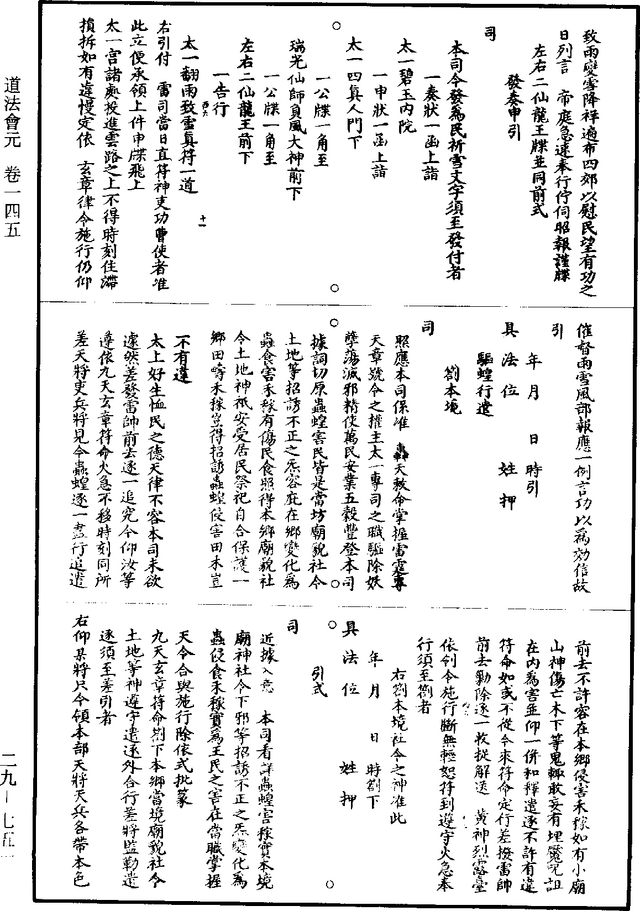 道法會元　卷一四五
致雨變雪降祥遍布四郊以慰民望有功之
日列言　帝庭急速奉行佇伺昭報謹牒
左右二仙龍王牒並同前式
發奏申引
司
本司今發為民祈雪文字須至發付者
一奏狀一函上詣
太一碧玉內院
一申狀一函上詣
太一四真人門下
一公牒一角至
瑞光仙師負風大神前下
一公牒一角至
左右二仙龍王前下
一告行
太一翻雨致雪真符一道
右引付　雷司當日直符神吏功曹使者准
此立便承領上件申牒飛上
太一宮諸處投進雲路之上不得時刻住滯
損拆如有違慢定依　玄章律令施行仍仰
催督雨雪風部報應一例言功以為効信故
引
年　月　日　時引
具　法　位　　姓　押
驅蝗行遣
劄本境
司
照應本司係准　天敕命掌握雷霆專
天章號令之權主太一專司之職驅除妖
孽蕩滅邪精使萬民安業五穀豐登本司
據詞切原蟲蝗害民皆是當坊廟貌社令
土地等招訪不正之炁容庇在鄉變化為
蟲食害禾稼有傷民食照得本鄉廟貌社
令土地神祇安受居民祭祀自合保護一
鄉田疇禾稼豈得招訪蟲蝗侵害田禾豈
不有違
太上好生恤民之德天律不容本司未欲
遽然差發雷帥前去逐一追究今仰汝等
遵依九天玄章符命火急不移時刻同所
差天將吏兵將見今蟲蝗逐一盡行追遣
前去不許容在本鄉侵害禾稼如有小廟
山神傷亡木下等鬼輒敢妄有埋魘咒詛
在內為害並仰一併和釋遣逐不許有違
符命如或不從今來符命定行差撥雷帥
前去勦除逐一救捉解送　黃神烈霹靂臺
依列令施行斷無輕恕符到遵守火急奉
行須至劄者
右劄本境社令之神准此
年　月　日　時劄下
具　法　位　　姓　押
引式
司
近據入意　本司看詳蟲蝗害稼實本境
廟神社令下邪等招訪不正之炁變化為
蟲侵食禾稼實為王民之害在當職掌握
天令合與施行除依式批篆
九天玄章符命劄下本鄉當境廟貌社令
土地等神遵守遣逐外合行差將監勒遣
逐須至差引者
右仰某將只今領本部天將天兵各帶本色
二九－七五一